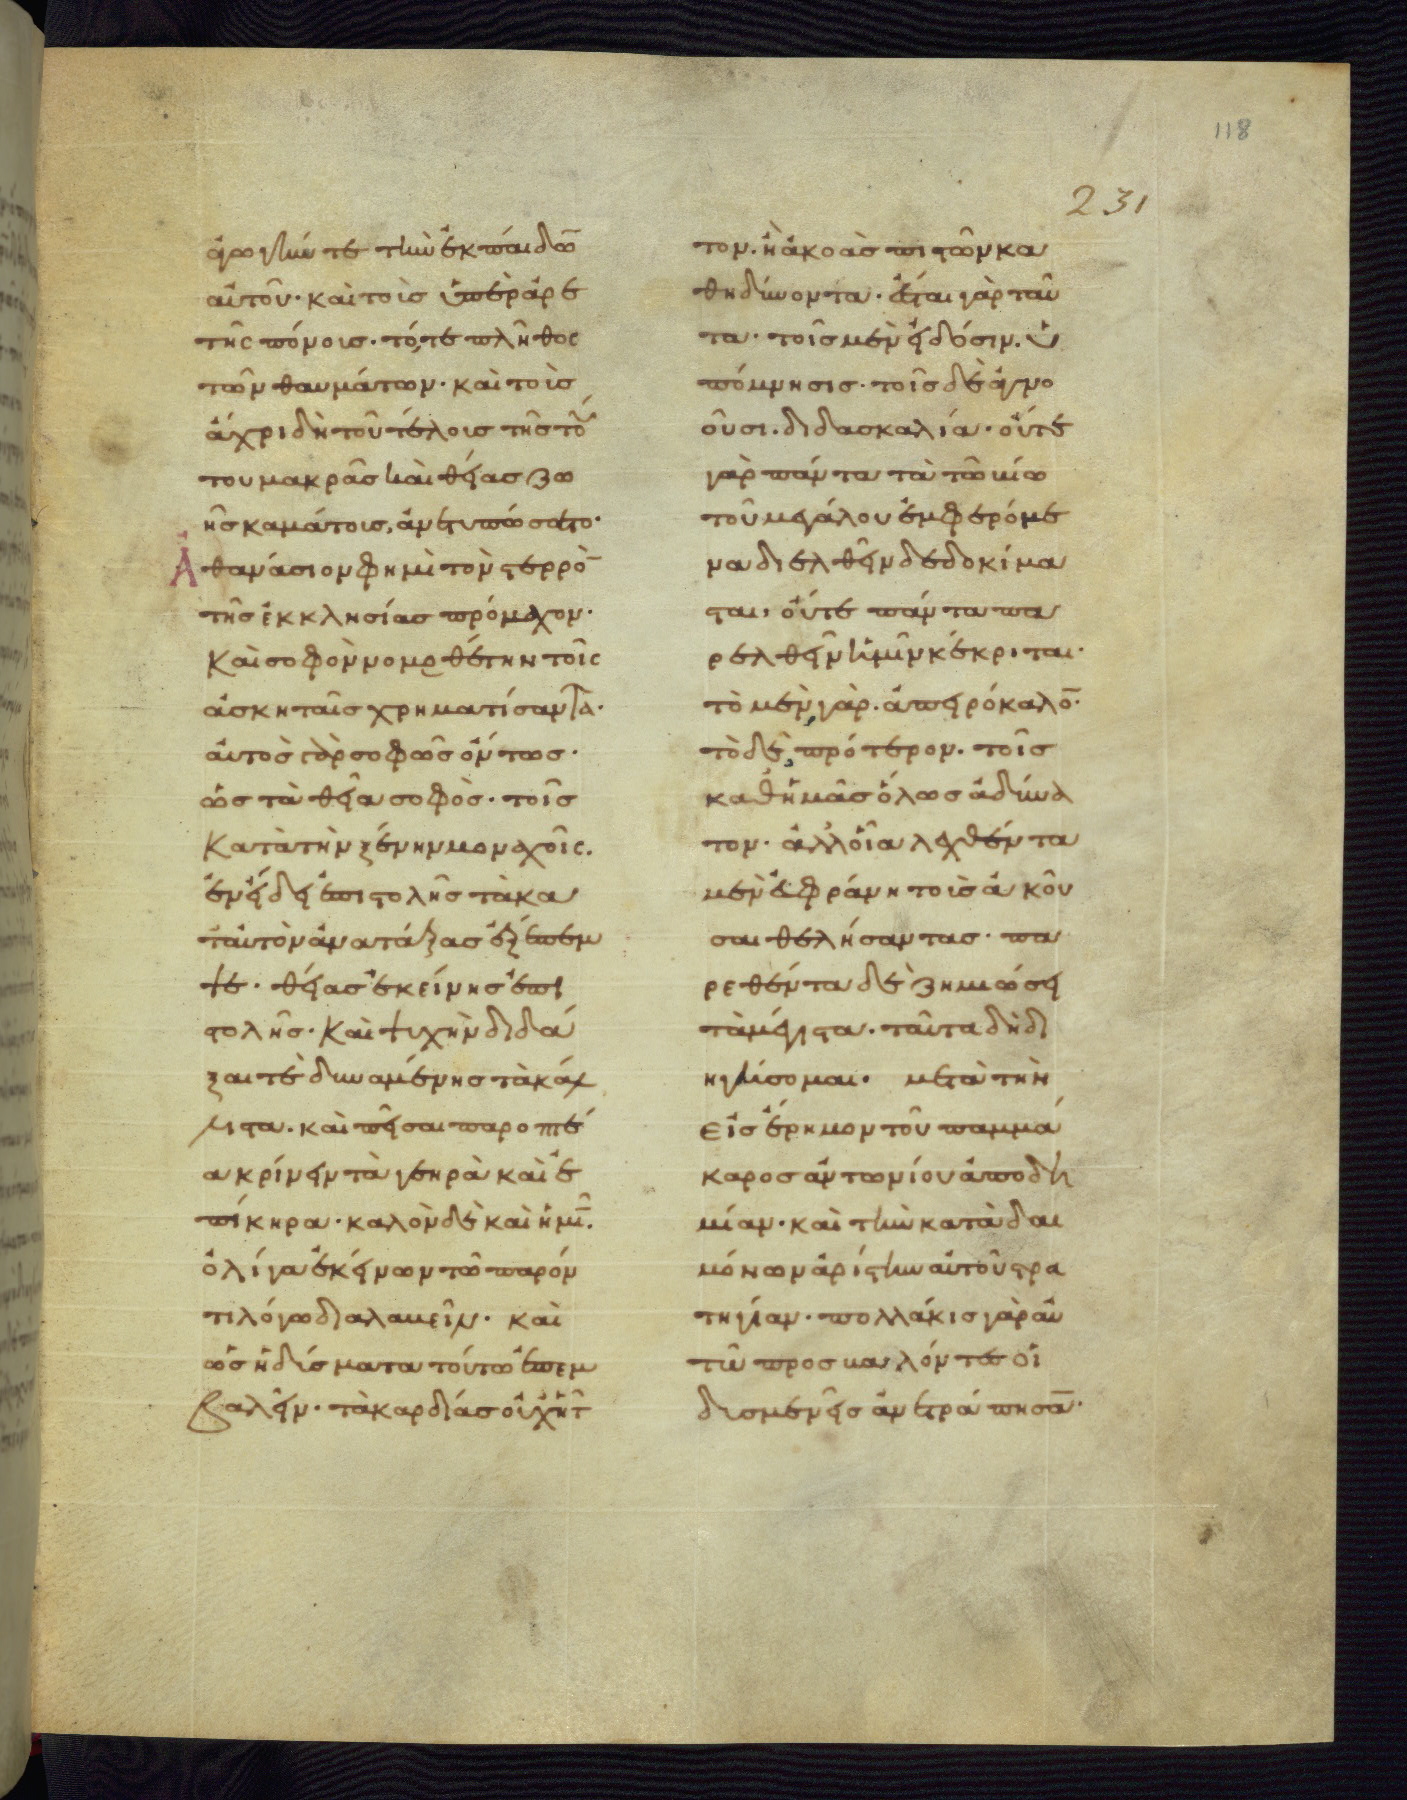 118
231
ἀγωγήν τε τὴν ἐκ παίδω̅
αὐτοῦ· καὶ τοῖς ὑπὲρ ἀρε
τῆς πόνοις· τό, τε πλῆθος
τῶν θαυμάτων· καὶ τοῖς
ἄχρι δὴ τοῦ τέλους τῆς τού
του μακρᾶς καὶ θείας ζω
ῆς καμάτοις, ἀντυπώσατο·
Ἀθανάσιον φημὶ τὸν στερρὸ̅
τῆς ἐκκλησίας πρόμαχον·
καὶ σοφὸν νομοθέτην τοῖς
ἀσκηταῖς χρηματίσαντα·
αὐτὸς γὰρ σοφῶς ὄντως·
ὡς τὰ θεῖα σοφὸς· τοῖς
κατὰ τὴν ξένην μοναχοῖς·
ἐν εἴδει ἐπιστολῆς τὰ κα
τ' αὐτὸν ἀνατάξας ἐξέπεμ
ψε· θείας ἐκείνης ἐπι
στολῆς· καὶ ψυχὴν διδά
ξαι τὲ δυναμένης τὰ κάλ
λιστα· καὶ πεῖσαι παροπτέ
α κρίνειν τὰ γεηρὰ καὶ ἐ
πίκηρα· καλὸν δὲ καὶ ἡμῖ̅·
ὀλίγα ἐκείνων τῶ παρόν
τι λόγω διαλαβεῖν· καὶ
ὡς ἡδύσματα τούτω ἐπεμ
βαλεῖν· τὰ καρδίας οὐχ ἧτ
τον· ἢ ἀκοὰς πιστῶν κα
θηδύνοντα· ἔσται γὰρ ταῦ
τα· τοῖς μὲν εἰδόσιν· ὑ
πόμνησις· τοῖς δὲ ἀγνο
οῦσι· διδασκαλία· οὔτε
γὰρ πάντα τὰ τῶ βίω
τοῦ μεγάλου ἐμφερόμε
να διελθεῖν δεδοκίμα
σται, οὔτε πάντα πα
ρελθεῖν ἡμῖν κέκριται·
τὸ μὲν γὰρ· ἀπειρόκαλο̅·
τὸ δὲ, πρότερον· τοῖς
καθ' ἡμᾶς ὅλως ἀδύνα
τον· ἀλλ' οἷα λεχθέντα
μὲν εὐφράνη τοὺς ἀκοῦ
σαι θελήσαντας· πα
ρεθέντα δὲ ζημιώσει
τὰ μέγιστα· ταῦτα δὴ δι
ηγήσομαι· μετὰ τὴν
εἰς ἔρημον τοῦ παμμά
καρος ἀντωνίου ἀποδη
μίαν· καὶ τὴν κατὰ δαι
μόνων ἀρίστην αὐτοῦ στρα
τηγίαν· πολλάκις γὰρ αὐ
τῶ προσβαλόντες οἱ
δυσμενεῖς ἀνετράπησα̅·